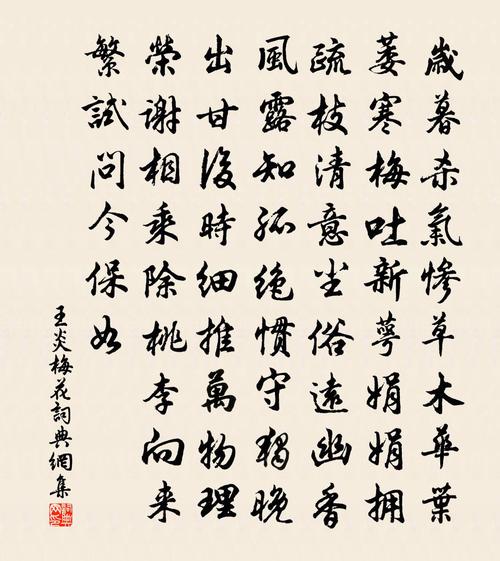 歲暮杀氣惨草木華葉
萎寒梅吐新萼娟娟拥
疏枝清意尘俗遠幽香
風露知孤绝慣守獨晚
出甘後時细推萬物理
榮謝相乘除桃李向来
繁試问今保如
王炎梅花詞典網集